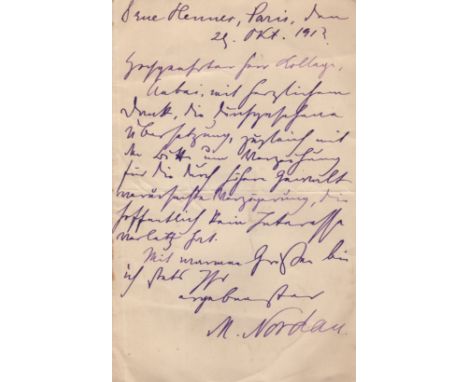 8 rue Henner, Paris, den
29. Okt. 1912
Hochgeehrter Herr Kollege,
Anbei, mit herzlichem
Dank, die durchgesehene
Übersetzung, zugleich mit
der Bitte um Verzeihung
für die durch höhere Gewalt
verursachte Verzögerung, die
hoffentlich kein Interesse
verletzt hat.
Mit warmen Grüßen bin
ich stets Ihr
ergebenster
M. Nordau